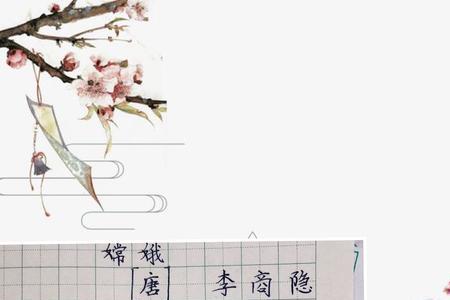 嫦娥
[唐] 李商隐